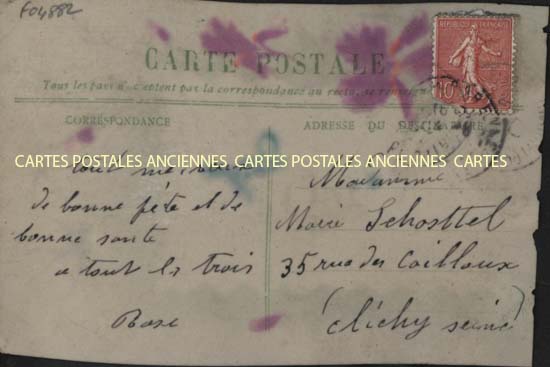 F04882
CARTE POSTALE
Tous les pays n'acceptent pas la correspondance au recto, se renseigner
CORRESPONDANCE
ADRESSE DU DESTINATAIRE
REPUBLIQUE FRANÇAISE
10
CARTES POSTALES ANCIENNES CARTES POSTALES ANCIENNES CARTES
de bonne fête et de
bonne santé
a tout les trois
Rose
Madamme
Marie Schosttel
35 rue des Cailloux
(Clichy seine)